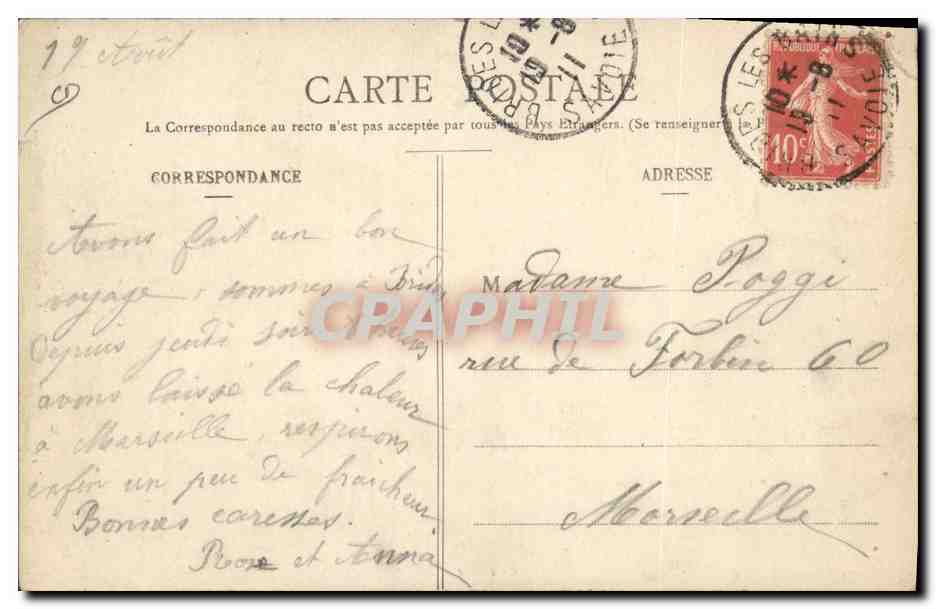 19 Août
CARTE POSTALE
BRIDES LES BAINS
10 *
19 - 8
11
SAVOIE
LES BAINS
10 *
19 - 8
11
SAVOIE
10c
POSTES
La Correspondance au recto n'est pas acceptée par tous les Pays Etrangers. (Se renseigner
CORRESPONDANCE
ADRESSE
Avons fait un bon
voyage, sommes à Brides
depuis jeudi soir
avons laissé la chaleur
à Marseille, respirons
enfin un peu de fraicheur.
Bonnes caresses.
Rose et Anna
Madame Poggi
rue de Forbin 60
Marseille
CPAPHIL